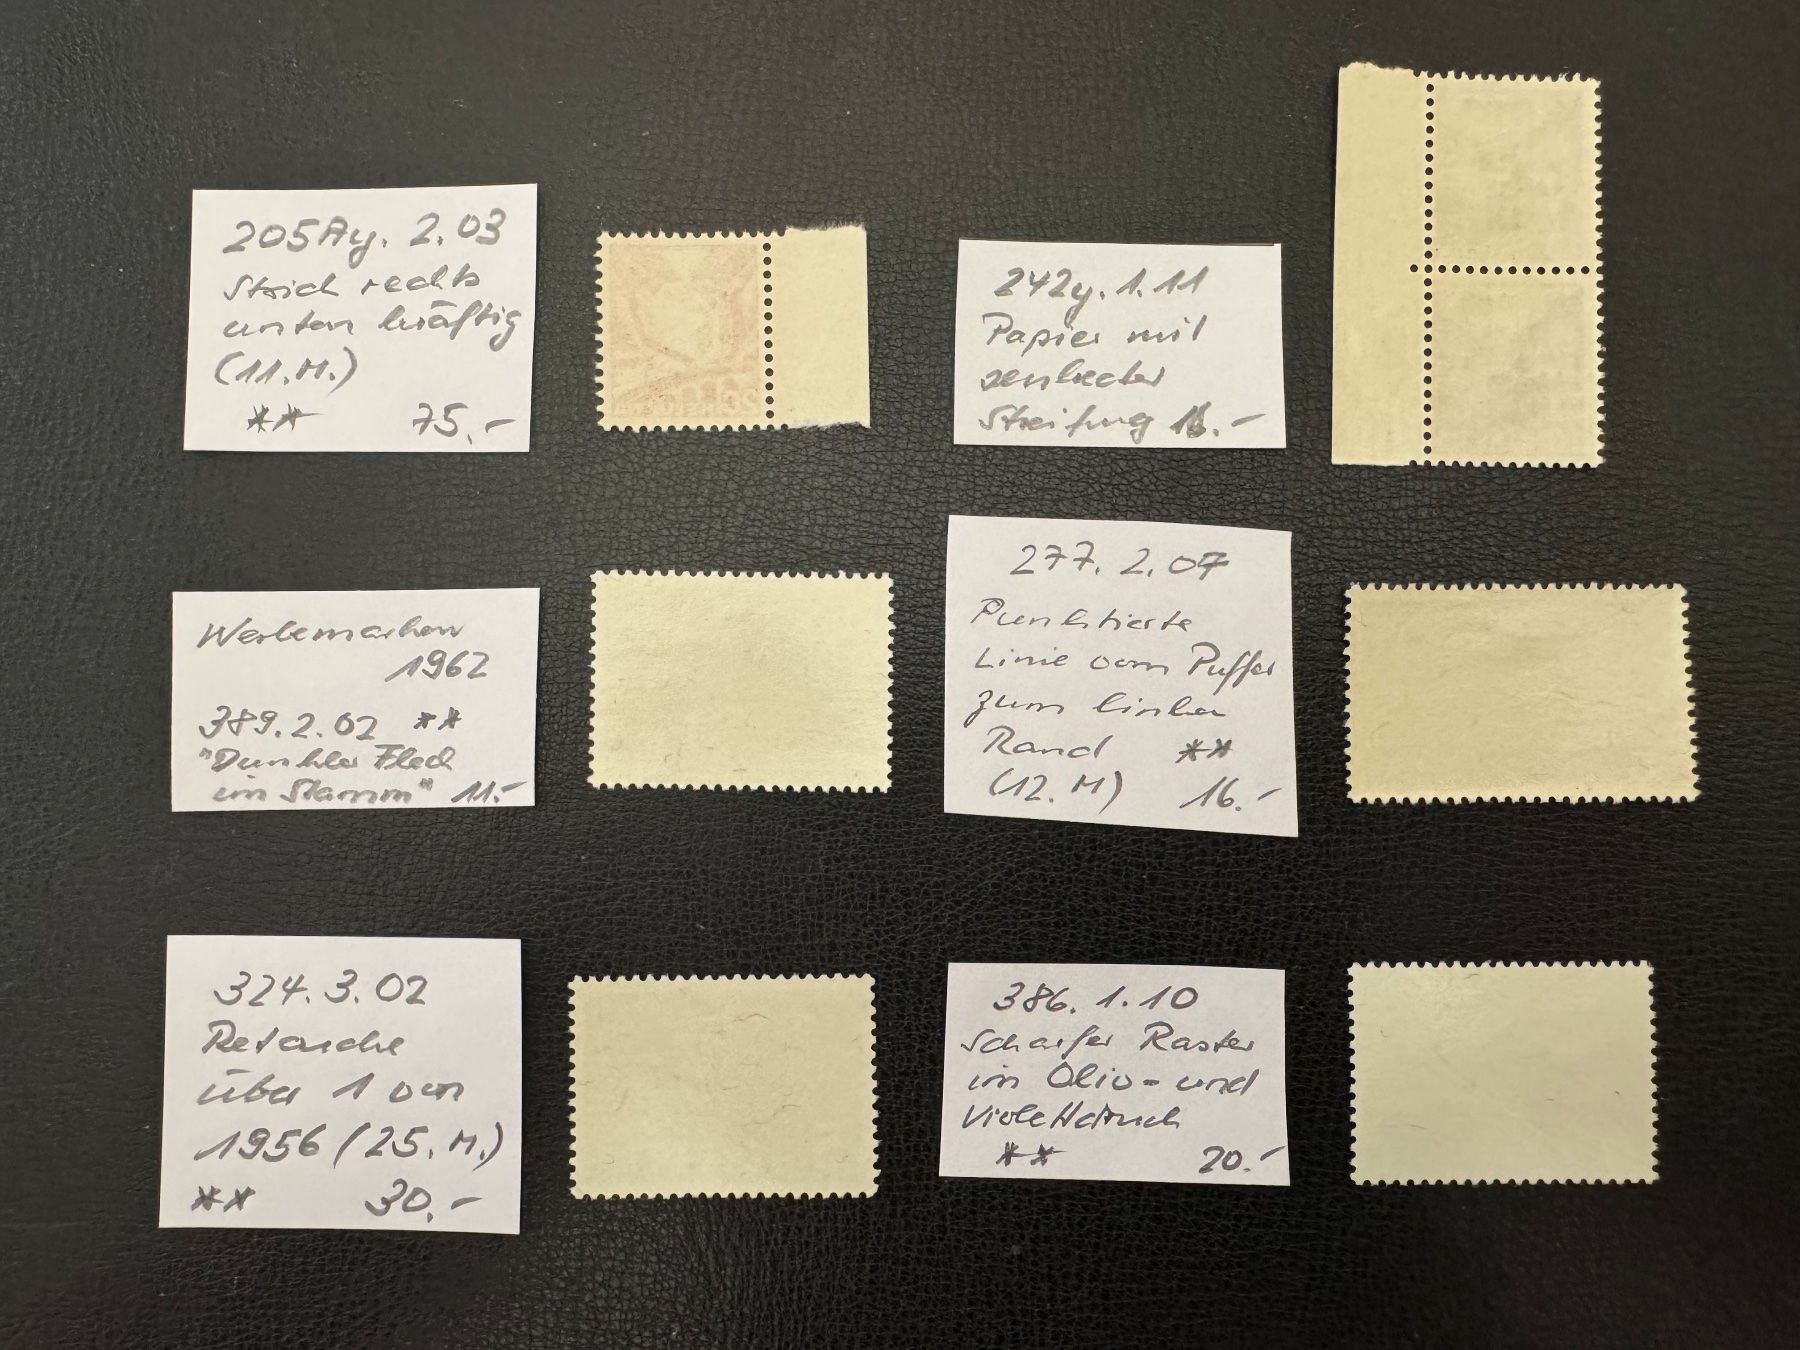 205Ay. 2.03
Strich rechts
unten kräftig
(11. M.)
** 75.-
242y. 1.11
Papier mit
senkrechter
Streifung 16.-
Werbemarken
1962
389.2.02 **
"Dunkler Fleck
im Stamm" 11.-
277. 2.07
Punktierte
Linie vom Puffer
zum linken
Rand **
(12. M) 16.-
324.3.02
Retouche
über 1 von
1956 (25. M.)
** 30.-
386. 1.10
Scharfer Raster
im Oliv- und
Violettdruck
** 20.-